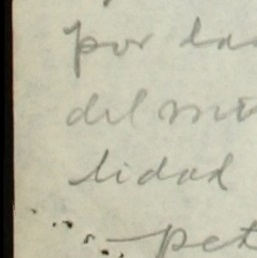 por la
del m
lidad
— pet